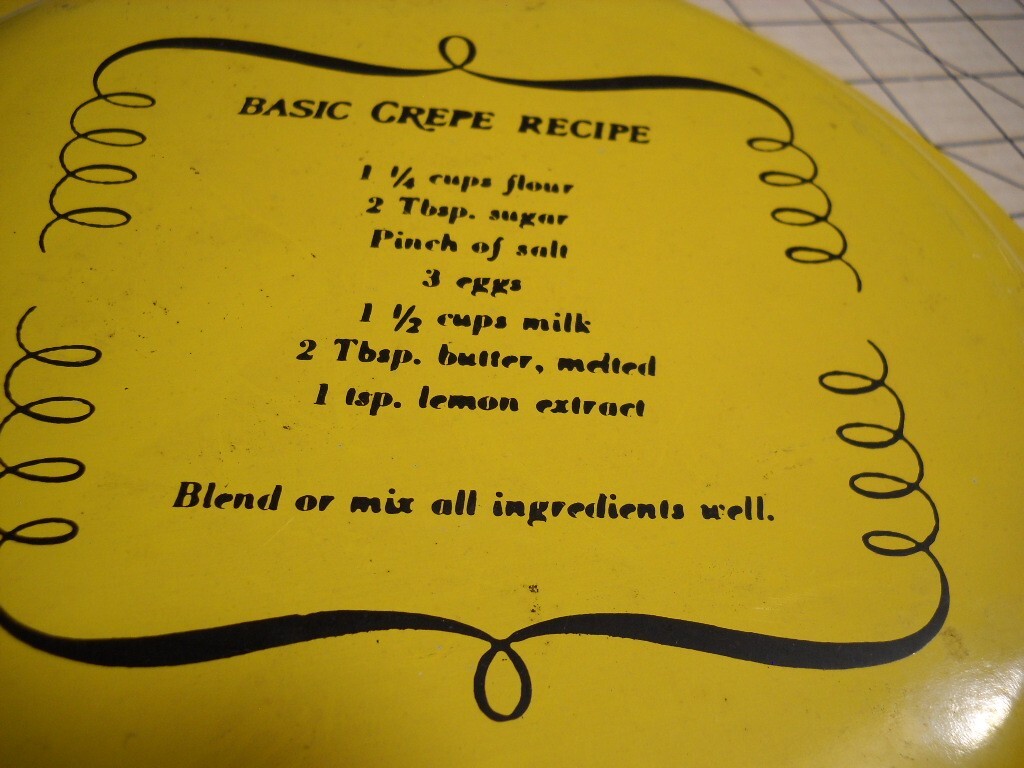 BASIC CREPE RECIPE
1 1/4 cups flour
2 Tbsp. sugar
Pinch of salt
3 eggs
1 1/2 cups milk
2 Tbsp. butter, melted
1 tsp. lemon extract
Blend or mix all ingredients well.